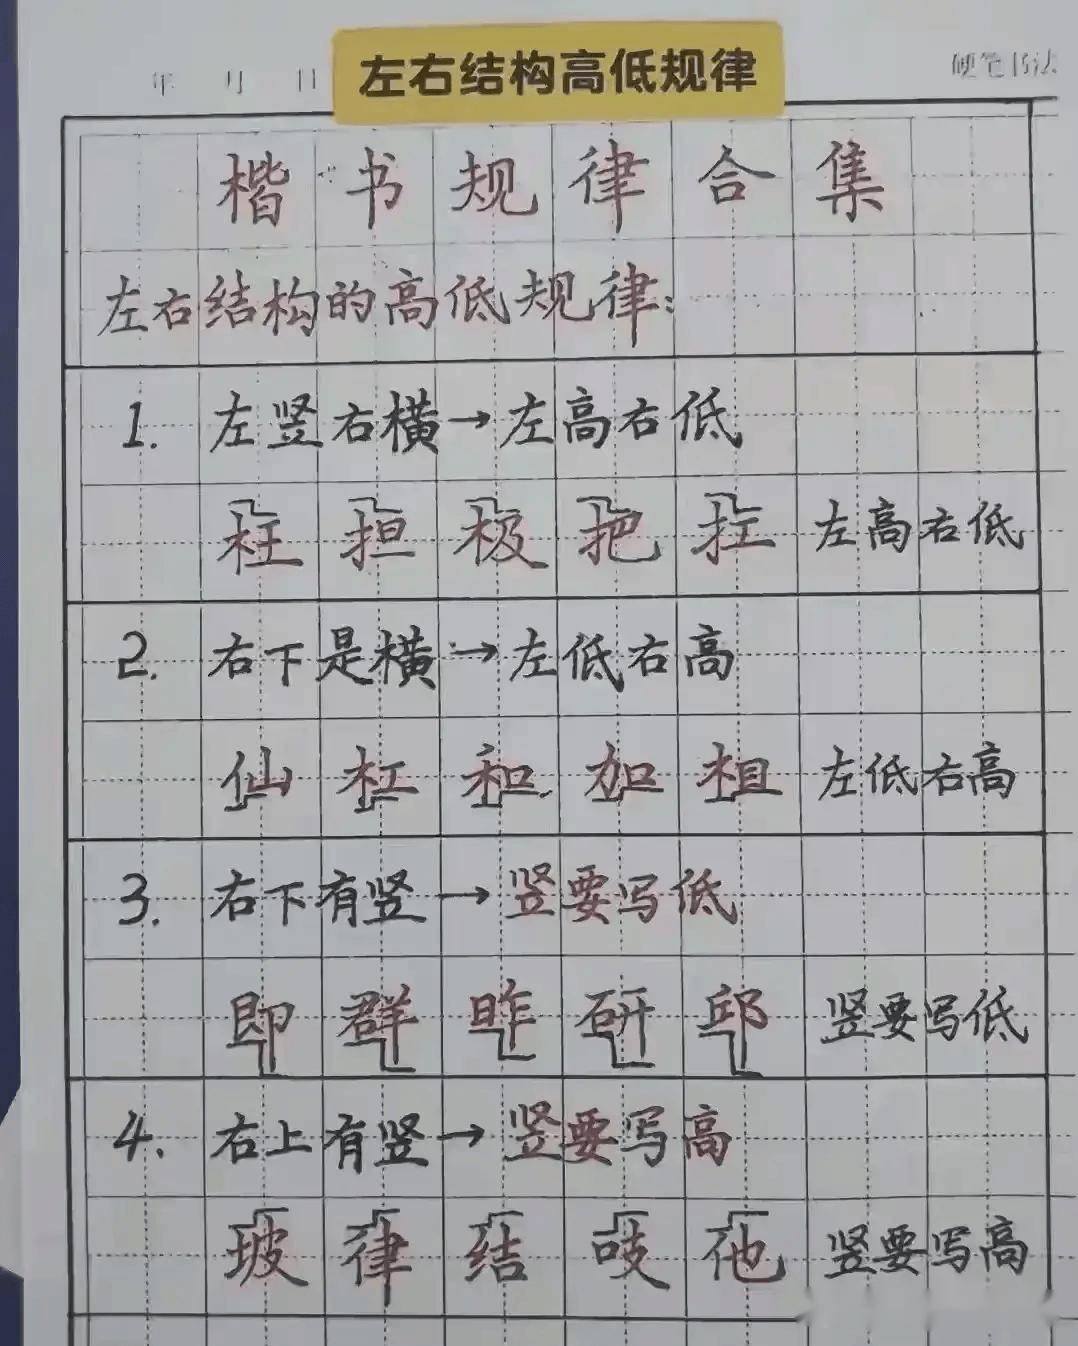 左右结构高低规律
年 月 日
硬笔书法
楷书规律合集
左右结构的高低规律:
1. 左竖右横→左高右低
枉 担 极 把 扛 左高右低
2. 右下是横→左低右高
仙 杠 和 加 粗 左低右高
3. 右下有竖→竖要写低
即 群 昨 研 邱 竖要写低
4. 右上有竖→竖要写高
玻 律 结 吱 他 竖要写高